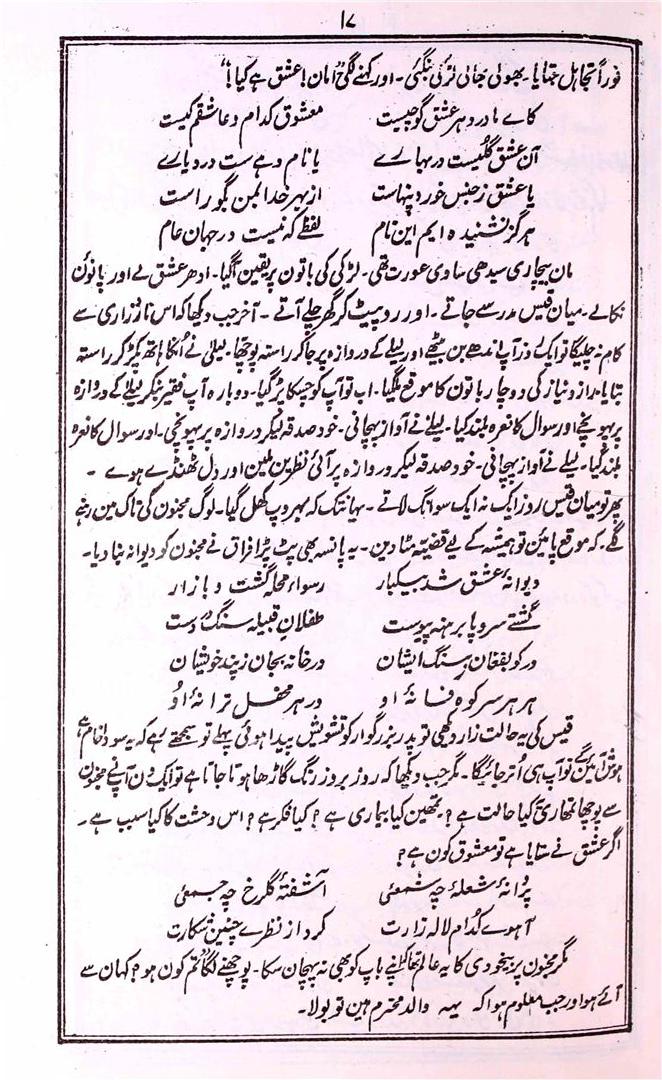 ۱۷
فوراً تجاہل جتایا۔ بھولی بھالی لڑکی بنگئی۔ اور کہنے لگی "اماں! عشق ہے کیا!"
کاے مادر دہر عشق گو چیست معشوق کدام و عاشقم کیست
آن عشق گلیست در بہارے یا نام دہے ست در دیارے
یا عشق ز جنس خورد پنہاست از بہر خدا بمن بگو راست
ہرگز نشنیدہ ایم این نام لفظے کہ نیست در جہان عام
مان بیچاری سیدھی سادی عورت تھی۔ لڑکی کی باتون پر یقین آگیا۔ ادھر عشق نے اور پانؤن
نکالے۔ میان قیس مدرسے جاتے۔ اور رو پیٹ کر گھر چلے آتے۔ آخر جب دیکھا کہ اس نازنزاری سے
کام نہ چلیگا تو ایک روز آپ اندھے بن بیٹھے اور لیلے کے دروازہ پر جاکر راستہ پوچھا۔ لیلیٰ نے اُنکا ہاتھ پکڑ کر راستہ
بتایا۔ راز و نیاز کی دو چار باتون کا موقع ملگیا۔ اب تو آپ کو چسکا پڑ گیا۔ دوبارہ آپ فقیر بنکر لیلےٰ کے دروازہ
پر پہونچے اور سوال کا نعرہ بلند کیا۔ لیلےٰ نے آواز پہچانی۔ خود صدقہ لیکر دروازہ پر پہونچی۔ اور سوال کا نعرہ
بلند کیا۔ لیلےٰ نے آواز پہچانی۔ خود صدقہ لیکر دروازہ پر آئی نظرین ملین اور دل ٹھنڈے ہوے۔
پھر تو میان قیس روز ایک نہ ایک سوانگ لاتے۔ یہانتک کہ بہروپ کھل گیا۔ لوگ مجنون کی تاک مین رہنے
لگے۔ کہ موقع پائین تو ہمیشہ کے لیے قضیہ مٹا دین۔ یہ پانسہ بھی پٹ پڑا فراق نے مجنون کو دیوانہ بنا دیا۔
دیوانۂ عشق شد بیکبار رسواے محلہ گشت و بازار
گشتے سر و پا برہنہ پیوست طفلانِ قبیلہ سنگ در دست
در کو بفغان بسنگ ایشان در خانہ بجان ز پند خویشان
ہر ہر سر کوہ فسانۂ او در ہر محفل ترانۂ اوُ
قیس کی یہ حالت زار دیکھی تو پدر بزرگوار کو تشویش پیدا ہوئی پہلے تو سمجھتے رہے کہ یہ سودا خام ہے
ہوش آئین گے تو آپ ہی اُتر جائیگا۔ مگر جب دیکھا کہ روز بروز رنگ گاڑھا ہوتا جاتا ہے تو ایک دن آپنے مجنون
سے پوچھا تمھاری کیا حالت ہے؟ تمھین کیا بیماری ہے؟ کیا فکر ہے؟ اس وحشت کا کیا سبب ہے۔
اگر عشق نے ستایا ہے تو معشوق کون ہے؟
پروانۂ شعلۂ چہ شمعئی آشفتۂ گلرخ چہ جمعئی
آہوے کدام لالہ زارت کرد از نظرے چنین شکارت
مگر مجنون پر بیخودی کا یہ عالم تھا کہ اپنے باپ کو بھی نہ پہچان سکا۔ پوچھنے لگا "تم کون ہو؟ کہان سے
آئے ہو اور جب معلوم ہوا کہ یہہ والد محترم ہین تو بولا۔